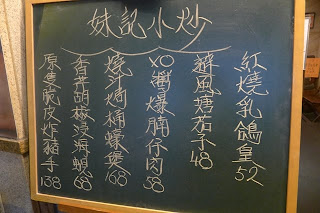 妹記小炒
紅燒乳鴿皇52
避風塘茄子48
XO醬爆腩仔肉58
燒汁焗桶蠔煲168
香芹胡椒浸海蜆68
原隻脆皮炸豬手138